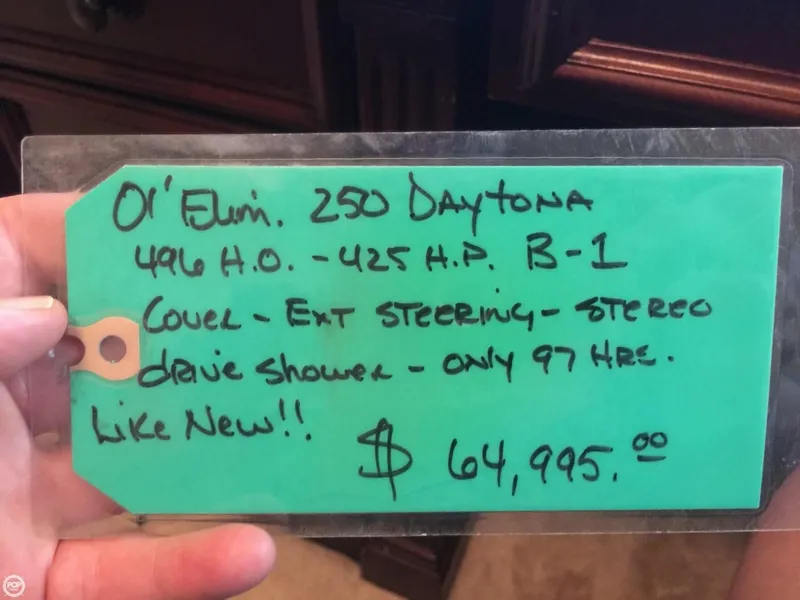 Ol' Elim. 250 DAytONA
496 H.O. - 425 H.P. B-1
Cover - Ext STEERING - STEREO
drive shower - ONLY 97 HRS.
Like New!!
$ 64,995.00
POP